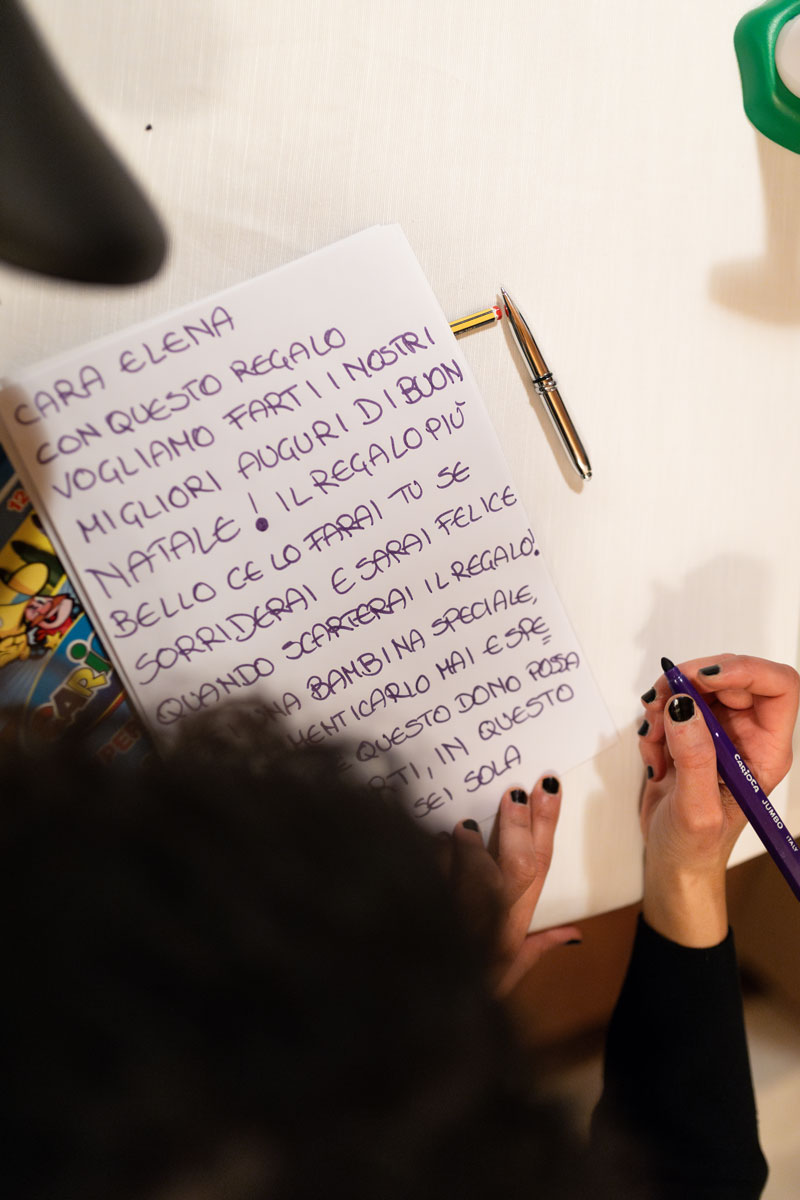 CARA ELENA
CON QUESTO REGALO
VOGLIAMO FARTI I NOSTRI
MIGLIORI AUGURI DI BUON
NATALE! IL REGALO PIÙ
BELLO CE LO FARAI TU SE
SORRIDERAI E SARAI FELICE
QUANDO SCARTERAI IL REGALO!
UNA BAMBINA SPECIALE,
MAI E SPE
QUESTO DONO POSSA
IN QUESTO
SEI SOLA
CARIOCA JUMBO ITALY